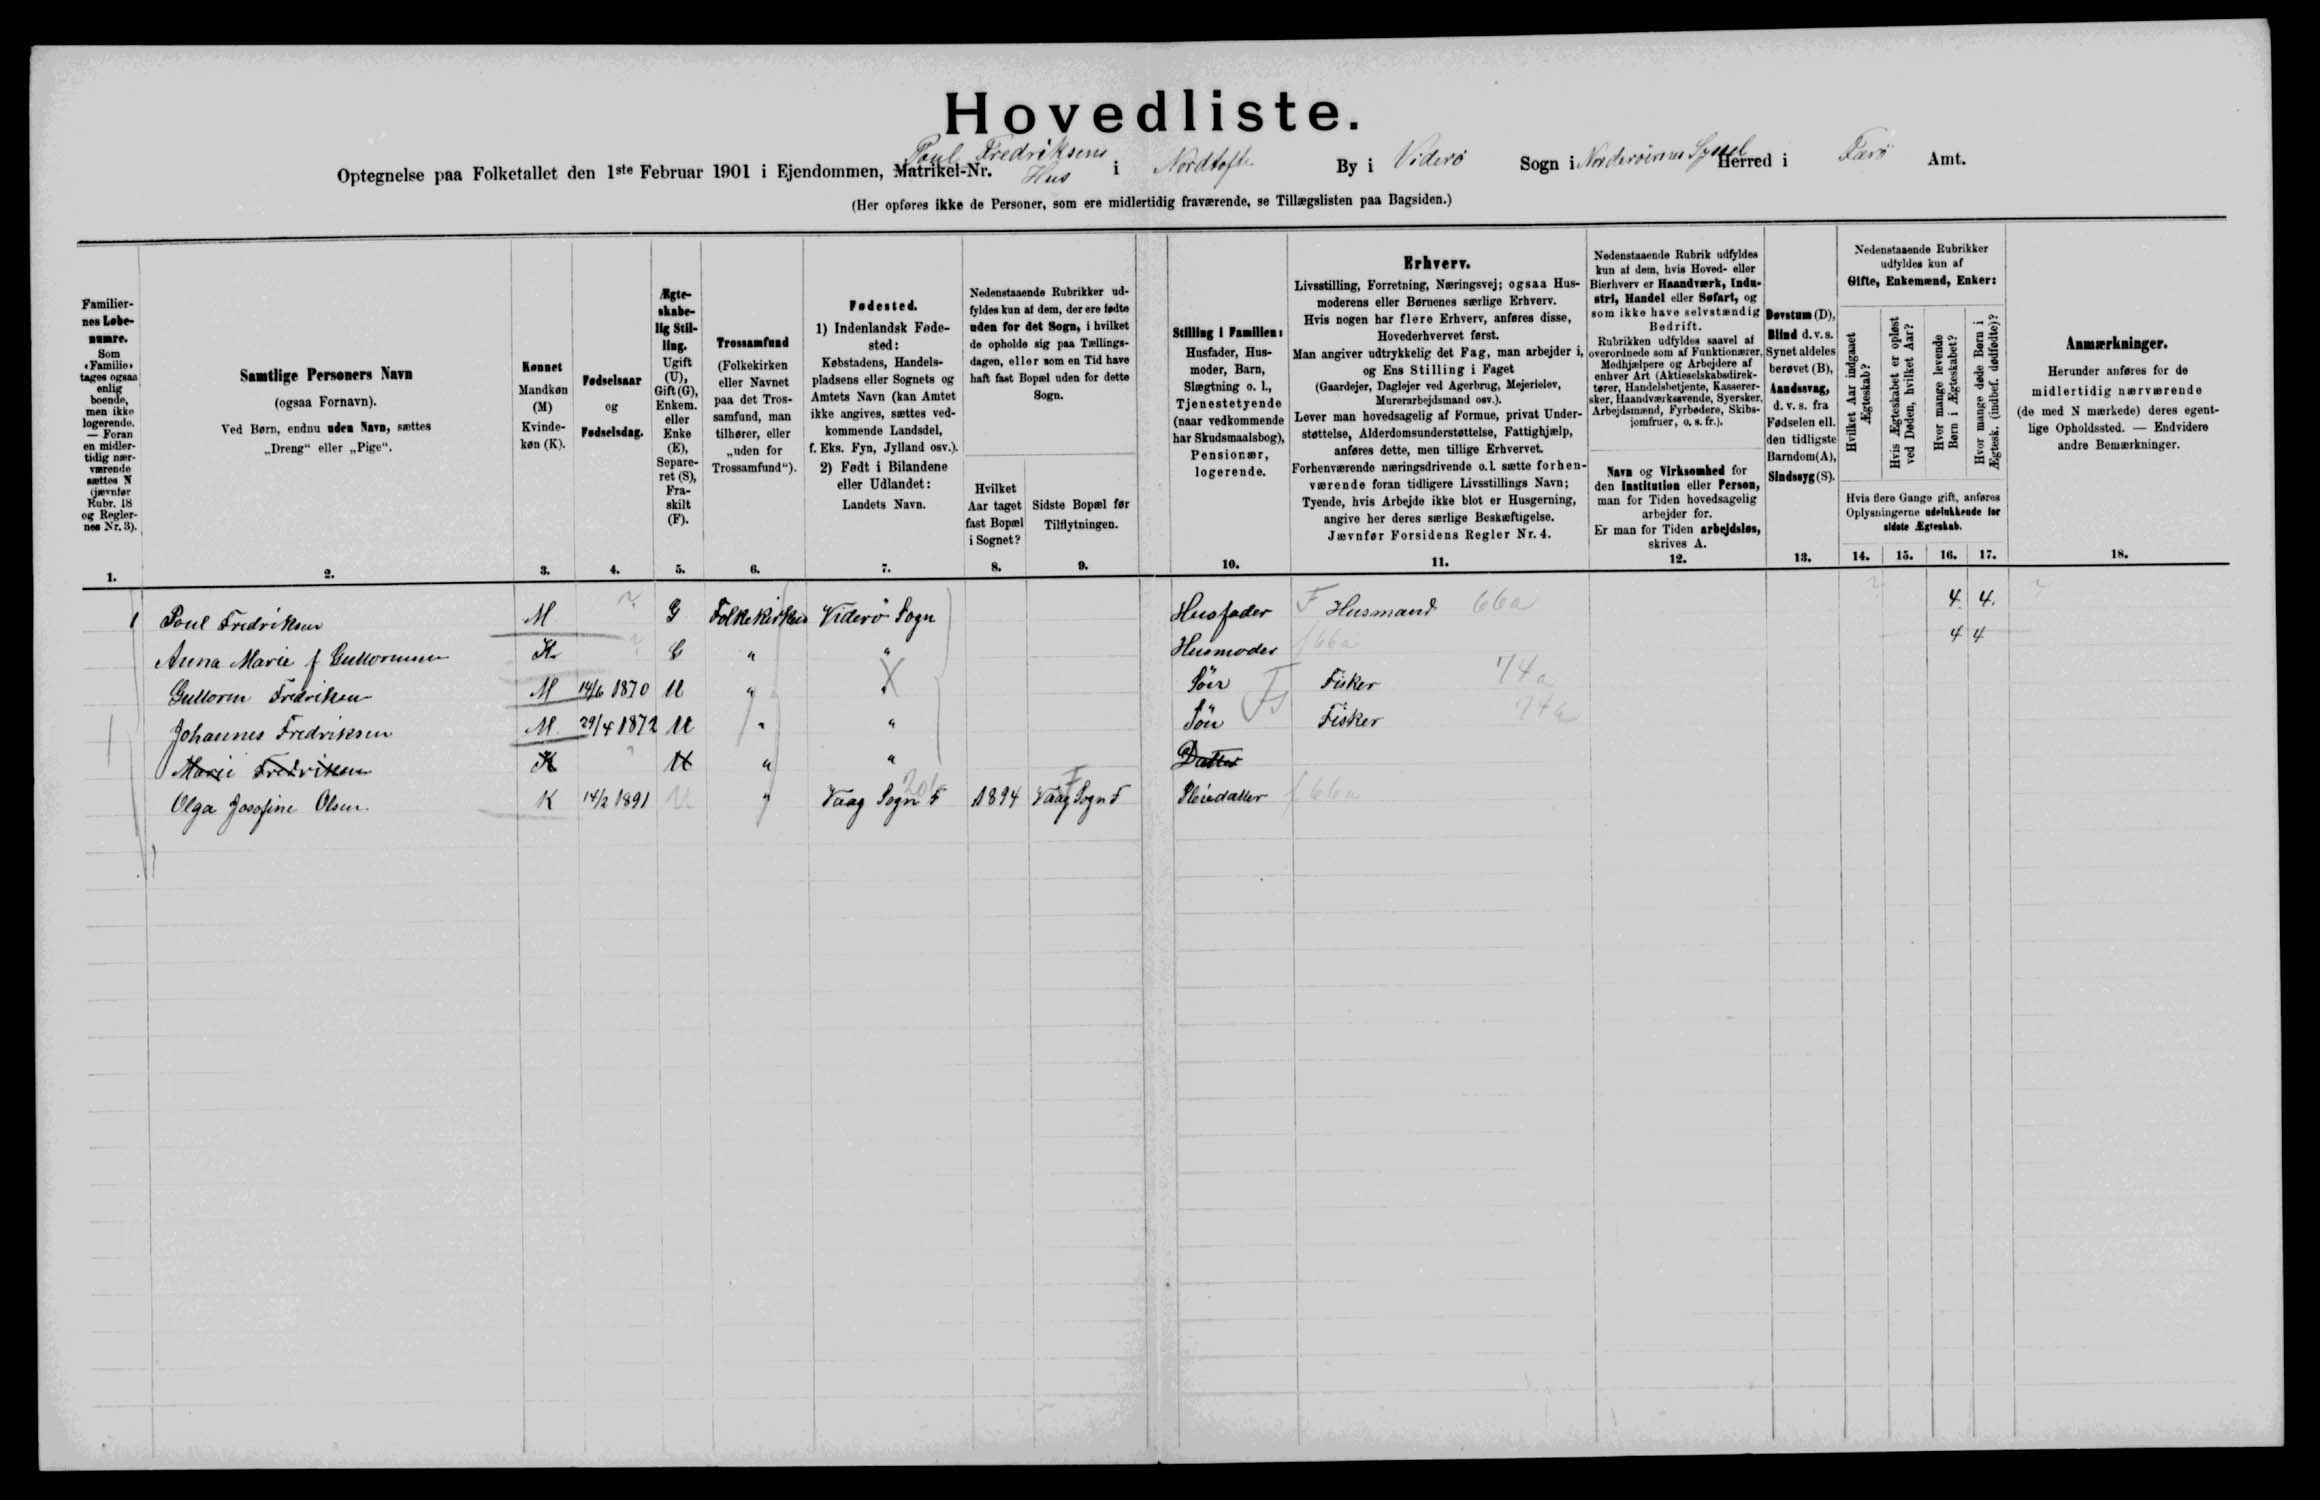 Hovedliste.
Optegnelse paa Folketallet den 1ste Februar 1901 i Ejendommen, Matrikel-Nr. Poul Fredriksens Hus i Nordtofte By i Viderö Sogn i Norderöernes Syssel Herred i Færö Amt.
(Her opføres ikke de Personer, som ere midlertidig fraværende, se Tillægslisten paa Bagsiden.)
Familier-
nes Løbe-
numre.
Som
„Familie“
tages ogsaa
enlig
boende,
men ikke
logerende.
— Foran
en midler-
tidig nær-
værende
sættes N
(jævnfør
Rubr. 18
og Regler-
nes Nr. 3).
1.
Samtlige Personers Navn
(ogsaa Fornavn).
Ved Børn, endnu uden Navn, sættes
„Dreng“ eller „Pige“.
2.
Kønnet
Mandkøn
(M)
Kvinde-
køn (K).
3.
Fødselsaar
og
Fødselsdag.
4.
Ægte-
skabe-
lig Stil-
ling.
Ugift
(U),
Gift (G),
Enkem.
eller
Enke
(E),
Separe-
ret (S),
Fra-
skilt
(F).
5.
Trossamfund
(Folkekirken
eller Navnet
paa det Tros-
samfund, man
tilhører, eller
„uden for
Trossamfund“).
6.
Fødested.
1) Indenlandsk Føde-
sted:
Købstadens, Handels-
pladsens eller Sognets og
Amtets Navn (kan Amtet
ikke angives, sættes ved-
kommende Landsdel,
f. Eks. Fyn, Jylland osv.).
2) Født i Bilandene
eller Udlandet:
Landets Navn.
7.
Nedenstaaende Rubrikker ud-
fyldes kun af dem, der ere fødte
uden for det Sogn, i hvilket
de opholde sig paa Tællings-
dagen, eller som en Tid have
haft fast Bopæl uden for dette
Sogn.
Hvilket
Aar taget
fast Bopæl
i Sognet?
8.
Sidste Bopæl før
Tilflytningen.
9.
Stilling i Familien:
Husfader, Hus-
moder, Barn,
Slægtning o. l.,
Tjenestetyende
(naar vedkommende
har Skudsmaalsbog),
Pensionær,
logerende.
10.
Erhverv.
Livsstilling, Forretning, Næringsvej; ogsaa Hus-
moderens eller Børnenes særlige Erhverv.
Hvis nogen har flere Erhverv, anføres disse,
Hovederhvervet først.
Man angiver udtrykkelig det Fag, man arbejder i,
og Ens Stilling i Faget
(Gaardejer, Daglejer ved Agerbrug, Mejerielev,
Murerarbejdsmand osv.).
Lever man hovedsagelig af Formue, privat Under-
støttelse, Alderdomsunderstøttelse, Fattighjælp,
anføres dette, men tillige Erhvervet.
Forhenværende næringsdrivende o. l. sætte forhen-
værende foran tidligere Livsstillings Navn;
Tyende, hvis Arbejde ikke blot er Husgerning,
angive her deres særlige Beskæftigelse.
Jævnfør Forsidens Regler Nr. 4.
11.
Nedenstaaende Rubrik udfyldes
kun af dem, hvis Hoved- eller
Bierhverv er Haandværk, Indu-
stri, Handel eller Søfart, og
som ikke have selvstændig
Bedrift.
Rubrikken udfyldes saavel af
overordnede som af Funktionærer,
Medhjælpere og Arbejdere af
enhver Art (Aktieselskabsdirek-
tører, Handelsbetjente, Kasserer-
sker, Haandværkssvende, Syersker,
Arbejdsmænd, Fyrbødere, Skibs-
jomfruer, o. s. fr.).
Navn og Virksomhed for
den Institution eller Person,
man for Tiden hovedsagelig
arbejder for.
Er man for Tiden arbejdsløs,
skrives A.
12.
Døvstum (D),
Blind d. v. s.
Synet aldeles
berøvet (B),
Aandssvag,
d. v. s. fra
Fødselen ell.
den tidligste
Barndom (A),
Sindssyg (S).
13.
Nedenstaaende Rubrikker
udfyldes kun af
Gifte, Enkemænd, Enker:
Hvilket Aar indgaaet
Ægteskab?
Hvis Ægteskabet er opløst
ved Døden, hvilket Aar?
Hvor mange levende
Børn i Ægteskabet?
Hvor mange døde Børn i
Ægtesk. (indbef. dødfødte)?
Hvis flere Gange gift, anføres
Oplysningerne udelukkende for
sidste Ægteskab.
14. 15. 16. 17.
Anmærkninger.
Herunder anføres for de
midlertidig nærværende
(de med N mærkede) deres egent-
lige Opholdssted. — Endvidere
andre Bemærkninger.
18.
1 Poul Fredriksen M ? G Folkekirken Viderö Sogn Husfader F Husmand 66a ? 4. 4. ?
Anna Marie f Guttormsen K. ? G " " Husmoder f 66a 4 4
Guttorm Fredriksen M 14/6 1870 U " " Sön F Fisker 74a
Johannes Fredriksen M. 29/4 1872 U " " Sön Fs Fisker 74a
Marie Fredriksen K ? U " " Datter
Olga Josefine Olsen K 14/2 1891 U " Vaag Sogn F 1894 Vaag Sogn F Pleiedatter f 66a